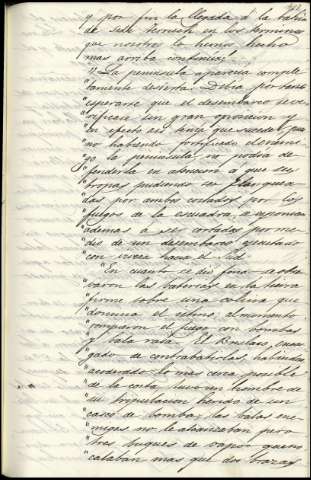 y por fin la llegada á la bahia
de San Kernish en los terminos
que nosotros la hemos hecho
mas arriba continua:
"La peninsula aparecia comple
"tamente desierta. Debia por tanto
"esperarse que el desembarco se ve-
"rificase sin gran oposicion y
"en efecto era que sucediese pues
"no habiendo fortificado el enemi-
"go la peninsula no podria de
"fenderla en atencion á que sus
"tropas pudiendo ser flanquea
"das por ambos costados por los
"fuegos de la escuadra, se esponian
"ademas á ser cortadas por me-
"dio de un desembarco ejecutado
"con viveza hacia el Sud.
"En cuanto se dió fondo a obser
"varon las baterias en la tierra
"firme sobre una colina que
"domina el istmo; al momento
"rompieron el fuego con bombas
"y bala rasa. El Breslaw, encar
"gado de contrabatirlas, habiendose
"acoderado lo mas cerca posible
"de la costa, tuvo un hombre de
"su tripulacion herido de un
"casco de bomba; las balas ene
"migas no le alcanzaban pero
"tres buques de vapor que no
"calaban mas que dos brazas